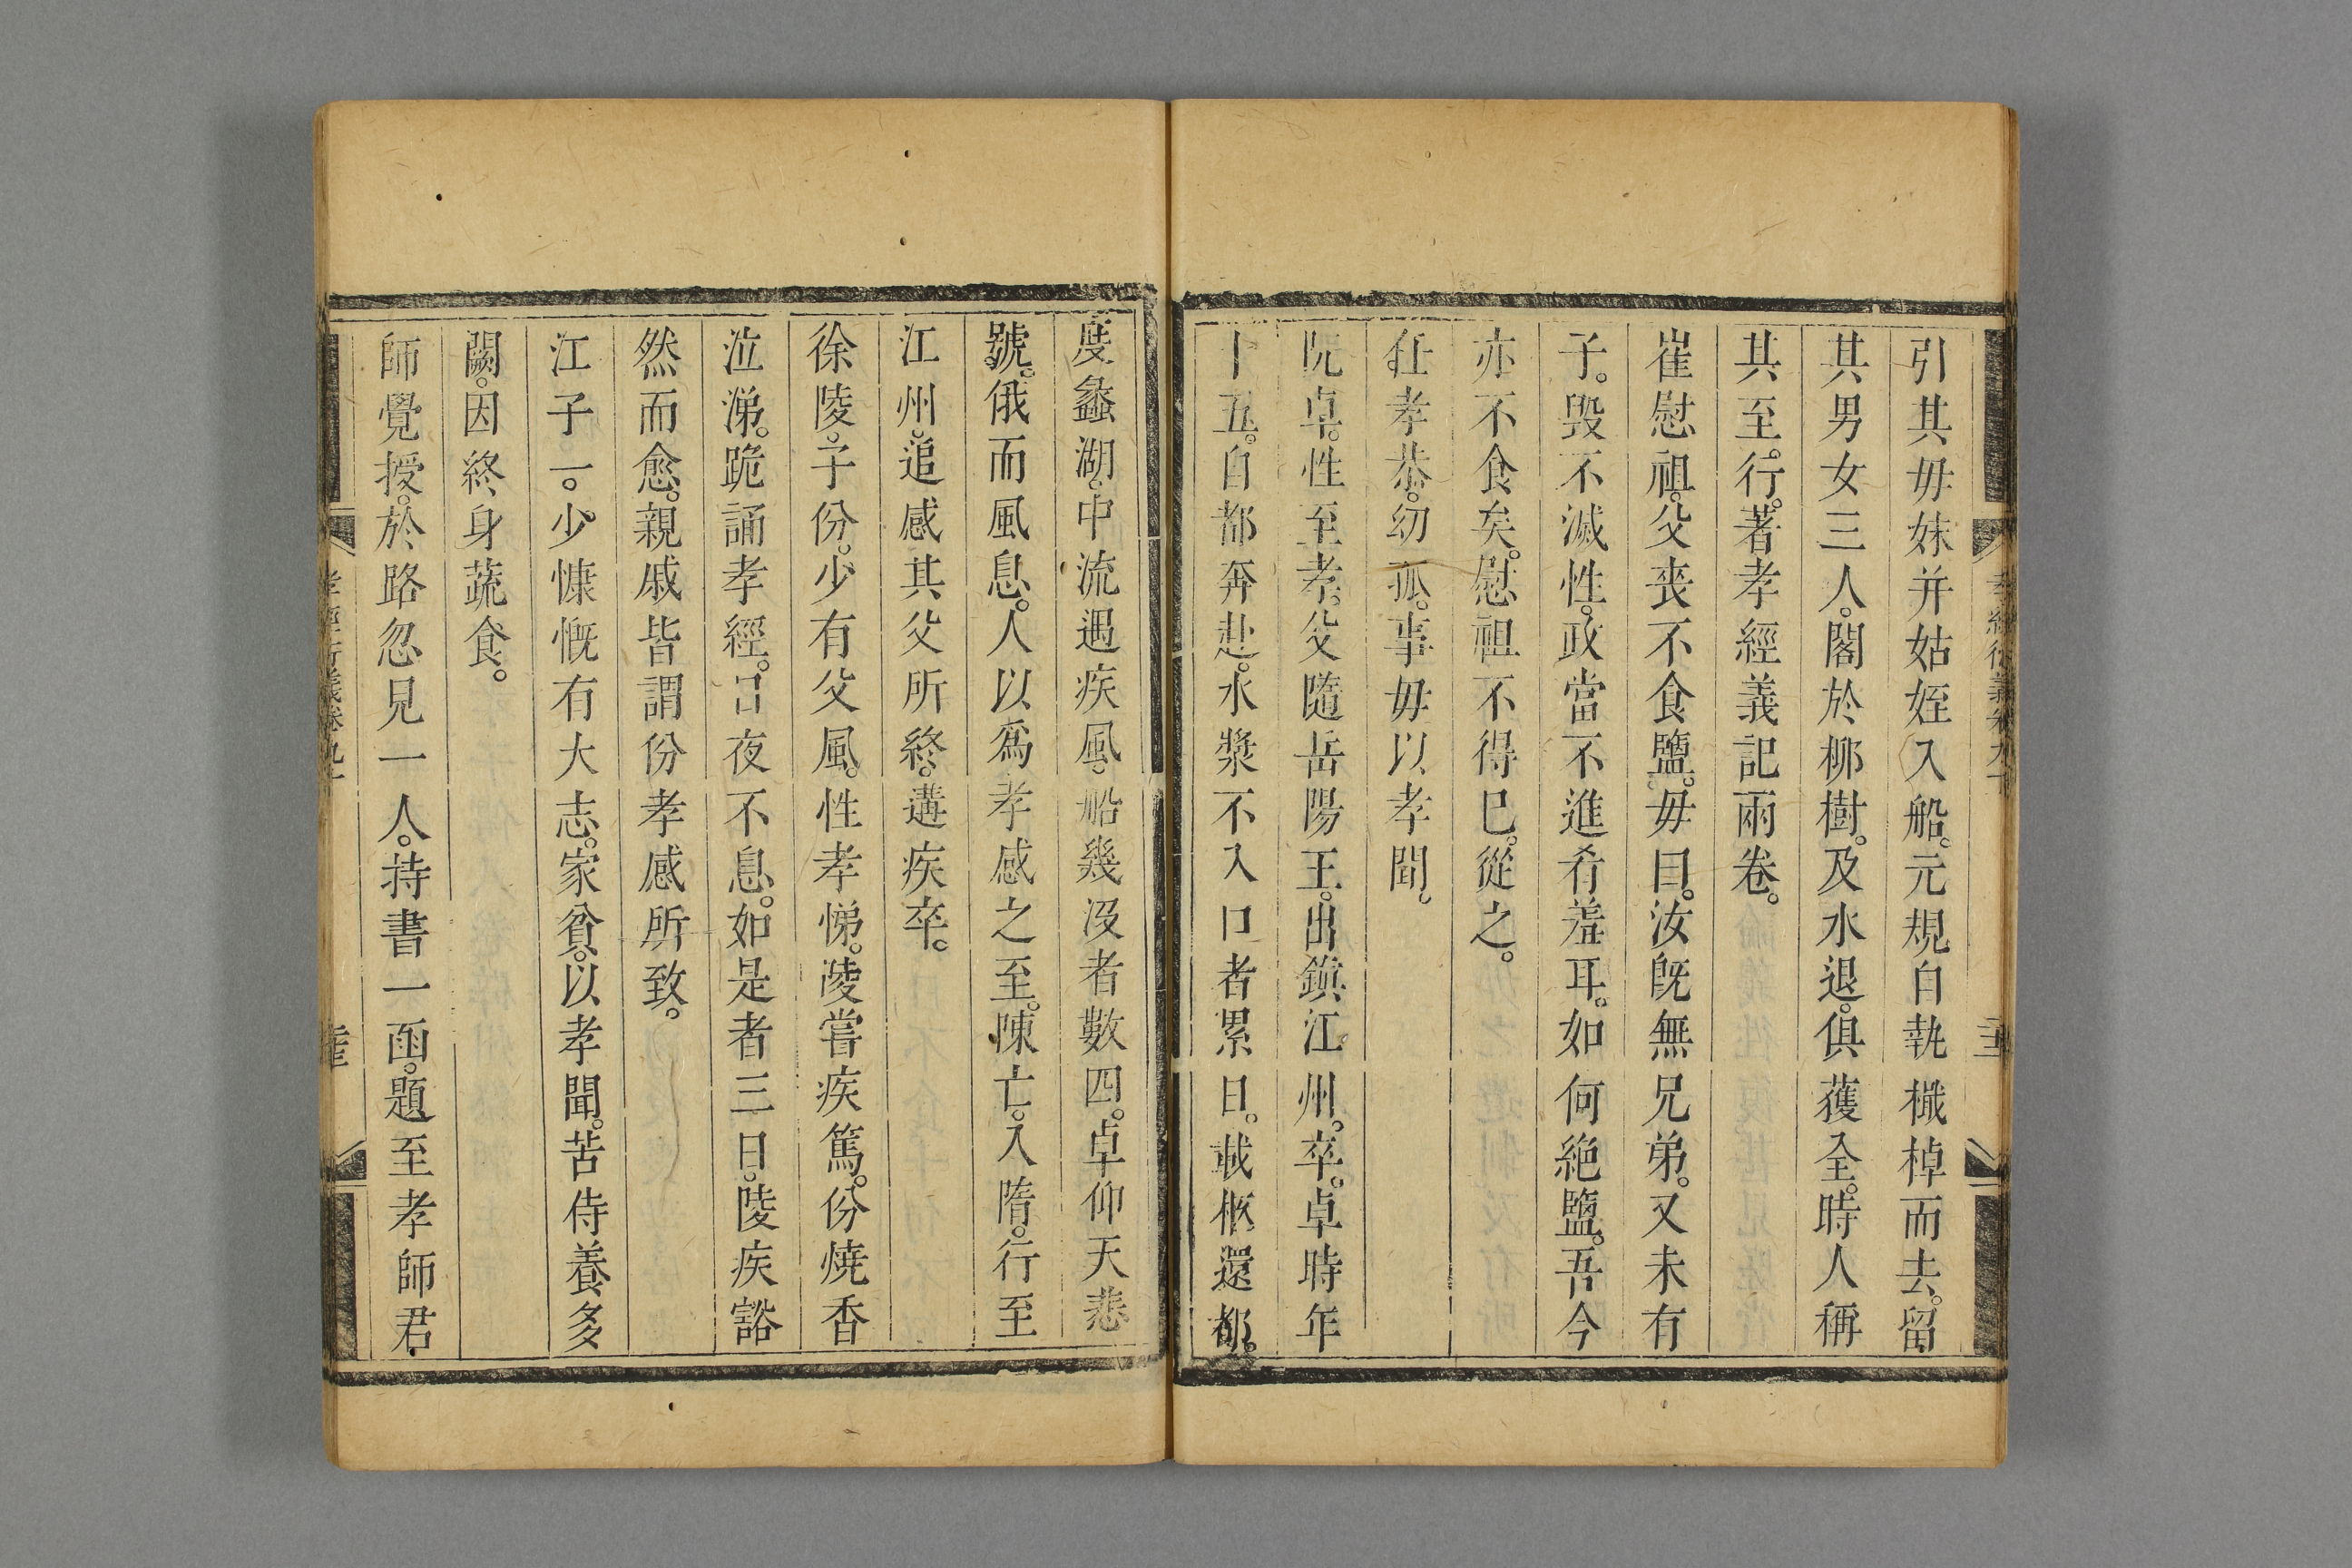 引其毋妹并姑姪入船。元規自執檝棹而去。留
其男女三人。閣於栁樹。及水退。俱獲全。時人稱
其至行。著孝經義記兩卷。
崔慰祖。父丧不食鹽。毋曰。汝旣無兄弟。又未有
子。毁不滅性。政當不進肴羞耳。如何絶鹽。吾今
亦不食矣。慰祖不得已。從之。
任孝恭。㓜孤。事毋以孝聞。
阮卓。性至孝。父隨岳陽王。出鎮江州。卒。卓時年
十五。自都奔赴。水漿不入口者累日。載柩還都。
度蠡湖。中流遇疾風。船幾没者數四。卓仰天悲
號。俄而風息。人以爲孝感之至。陳亡。入隋。行至
江州。追感其父所終。遘疾卒。
徐陵。子份。少有父風。性孝悌。陵嘗疾篤。份焼香
泣涕。跪誦孝經。日夜不息。如是者三日。陵疾豁
然而愈。親戚皆謂份孝感所致。
江子一。少慷慨有大志。家貧。以孝聞。苦侍養多
闕。因終身蔬食。
師覺授。於路忽見一人。持書一函。題至孝師君